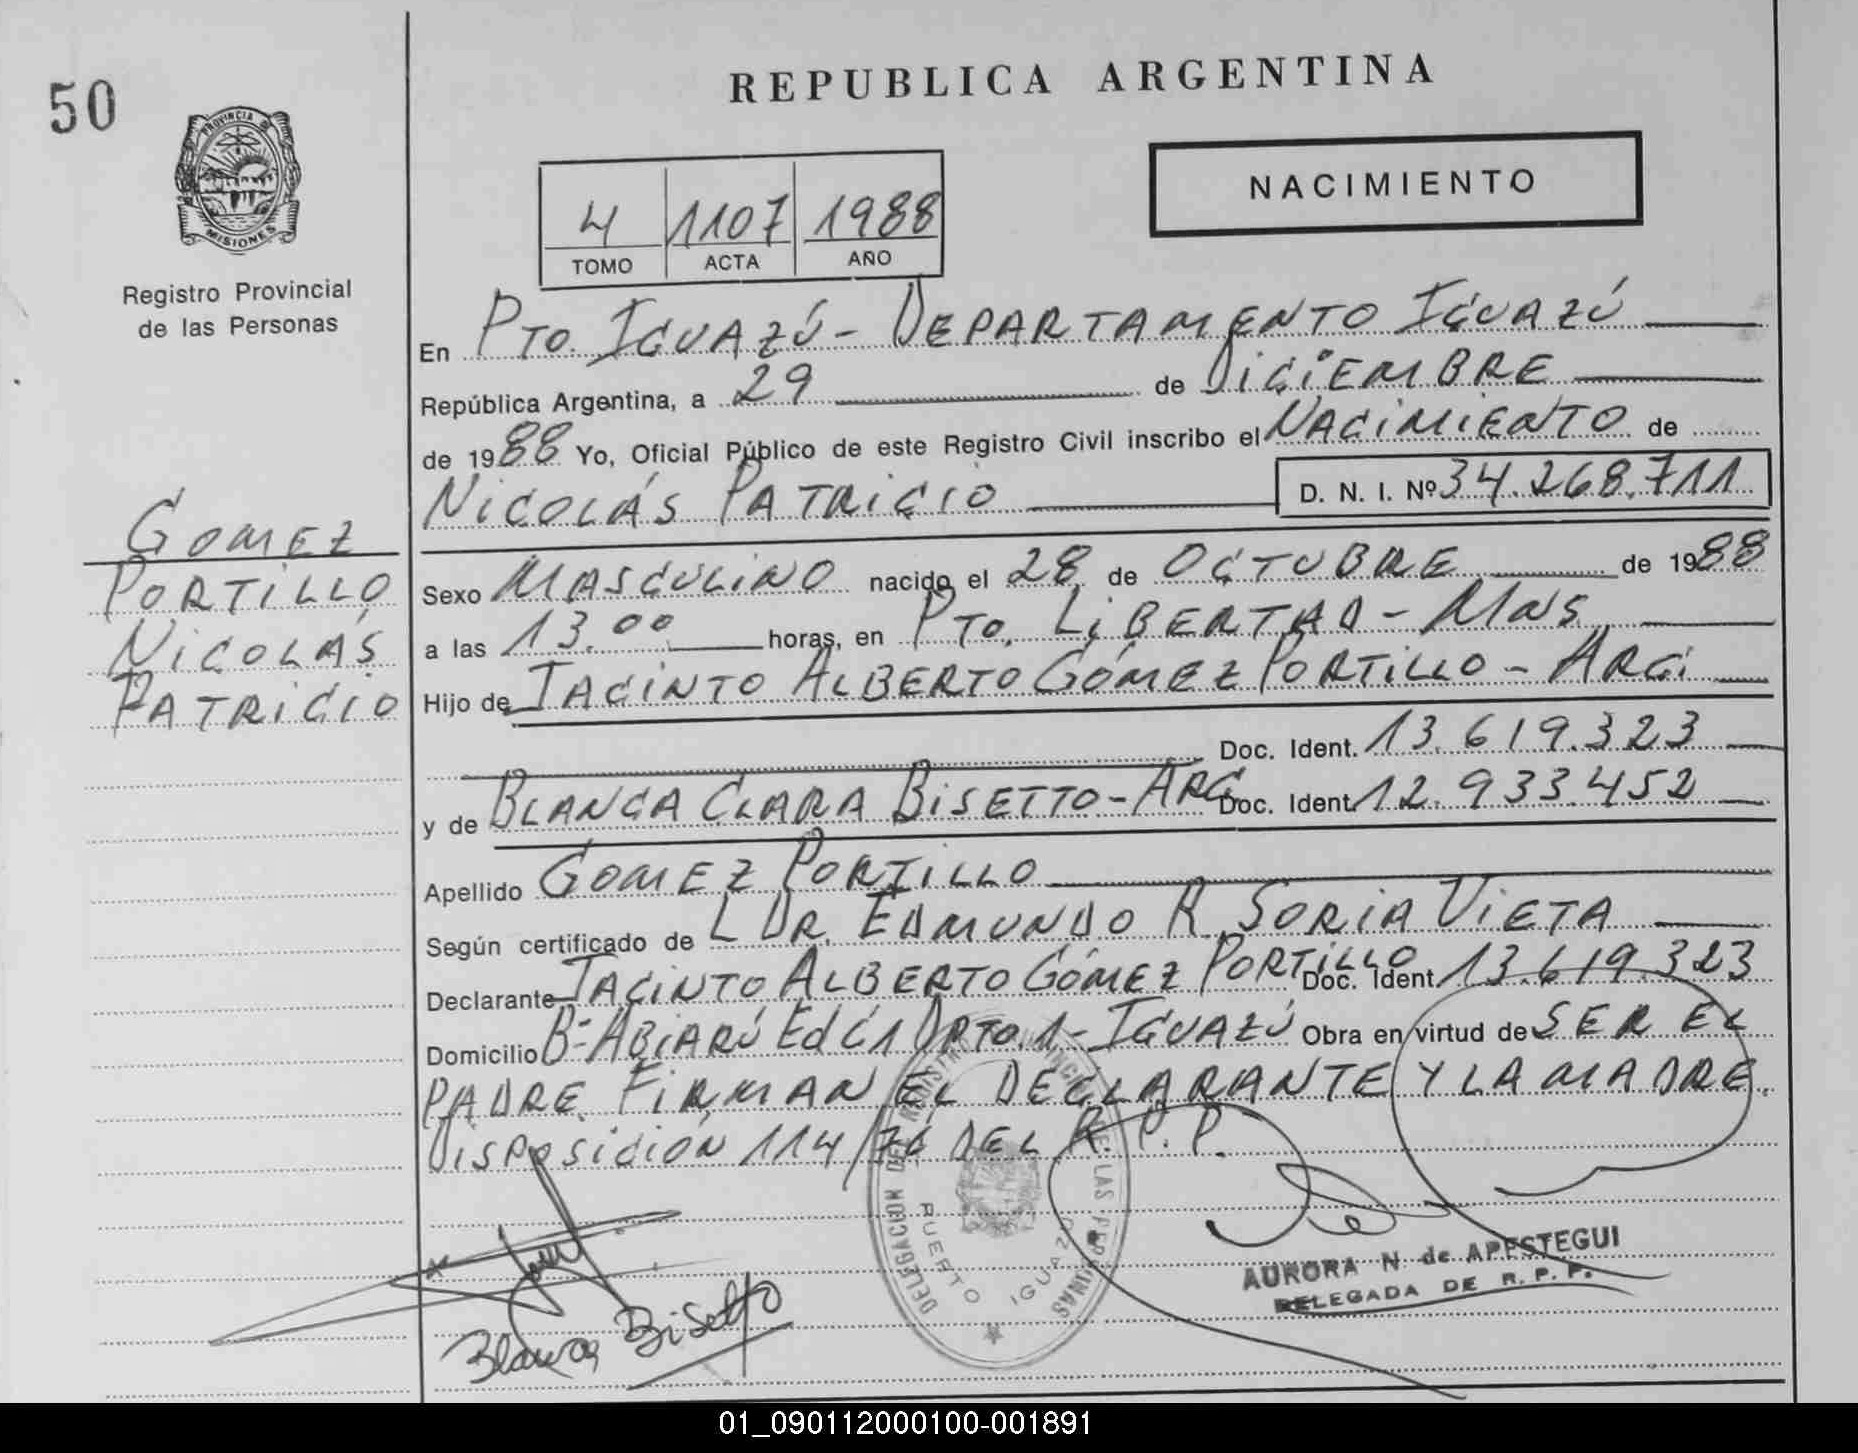 50
PROVINCIA DE
MISIONES
Registro Provincial
de las Personas
GOMEZ
PORTILLO
NICOLÁS
PATRICIO
REPUBLICA ARGENTINA
4 1107 1988
TOMO ACTA AÑO
NACIMIENTO
En PTO. IGUAZÚ - DEPARTAMENTO IGUAZÚ
República Argentina, a 29 de DICIEMBRE
de 1988 Yo, Oficial Público de este Registro Civil inscribo el NACIMIENTO de
NICOLÁS PATRICIO D. N. I. Nº 34.268.711
Sexo MASCULINO nacido el 28 de OCTUBRE de 1988
a las 13.00 horas, en PTO. LIBERTAD - MNS
Hijo de JACINTO ALBERTO GÓMEZ PORTILLO - ARG.
Doc. Ident. 13.619.323
y de BLANCA CLARA BISETTO - ARG Doc. Ident. 12.933.452
Apellido GOMEZ PORTILLO
Según certificado de L DR. EDMUNDO R SORIA VIETA
Declarante JACINTO ALBERTO GÓMEZ PORTILLO Doc. Ident. 13.619.323
Domicilio Bº ABIARÚ Ed C1 DPTO. 1 - IGUAZÚ Obra en virtud de SER EL
PADRE. FIRMAN EL DECLARANTE Y LA MADRE.
DISPOSICIÓN 114/76 DEL R. P. P.
DELEGACION DEL REGISTRO PROVINCIAL DE LAS PERSONAS
PUERTO IGUAZU
Blanca Bisetto
AURORA N de APESTEGUI
DELEGADA DE R. P. P.
01_090112000100-001891